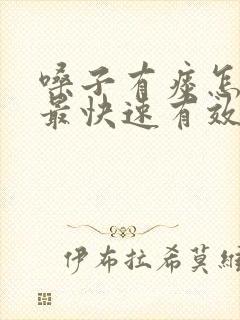 嗓子有痰怎
最快速有效
伊布拉希莫维